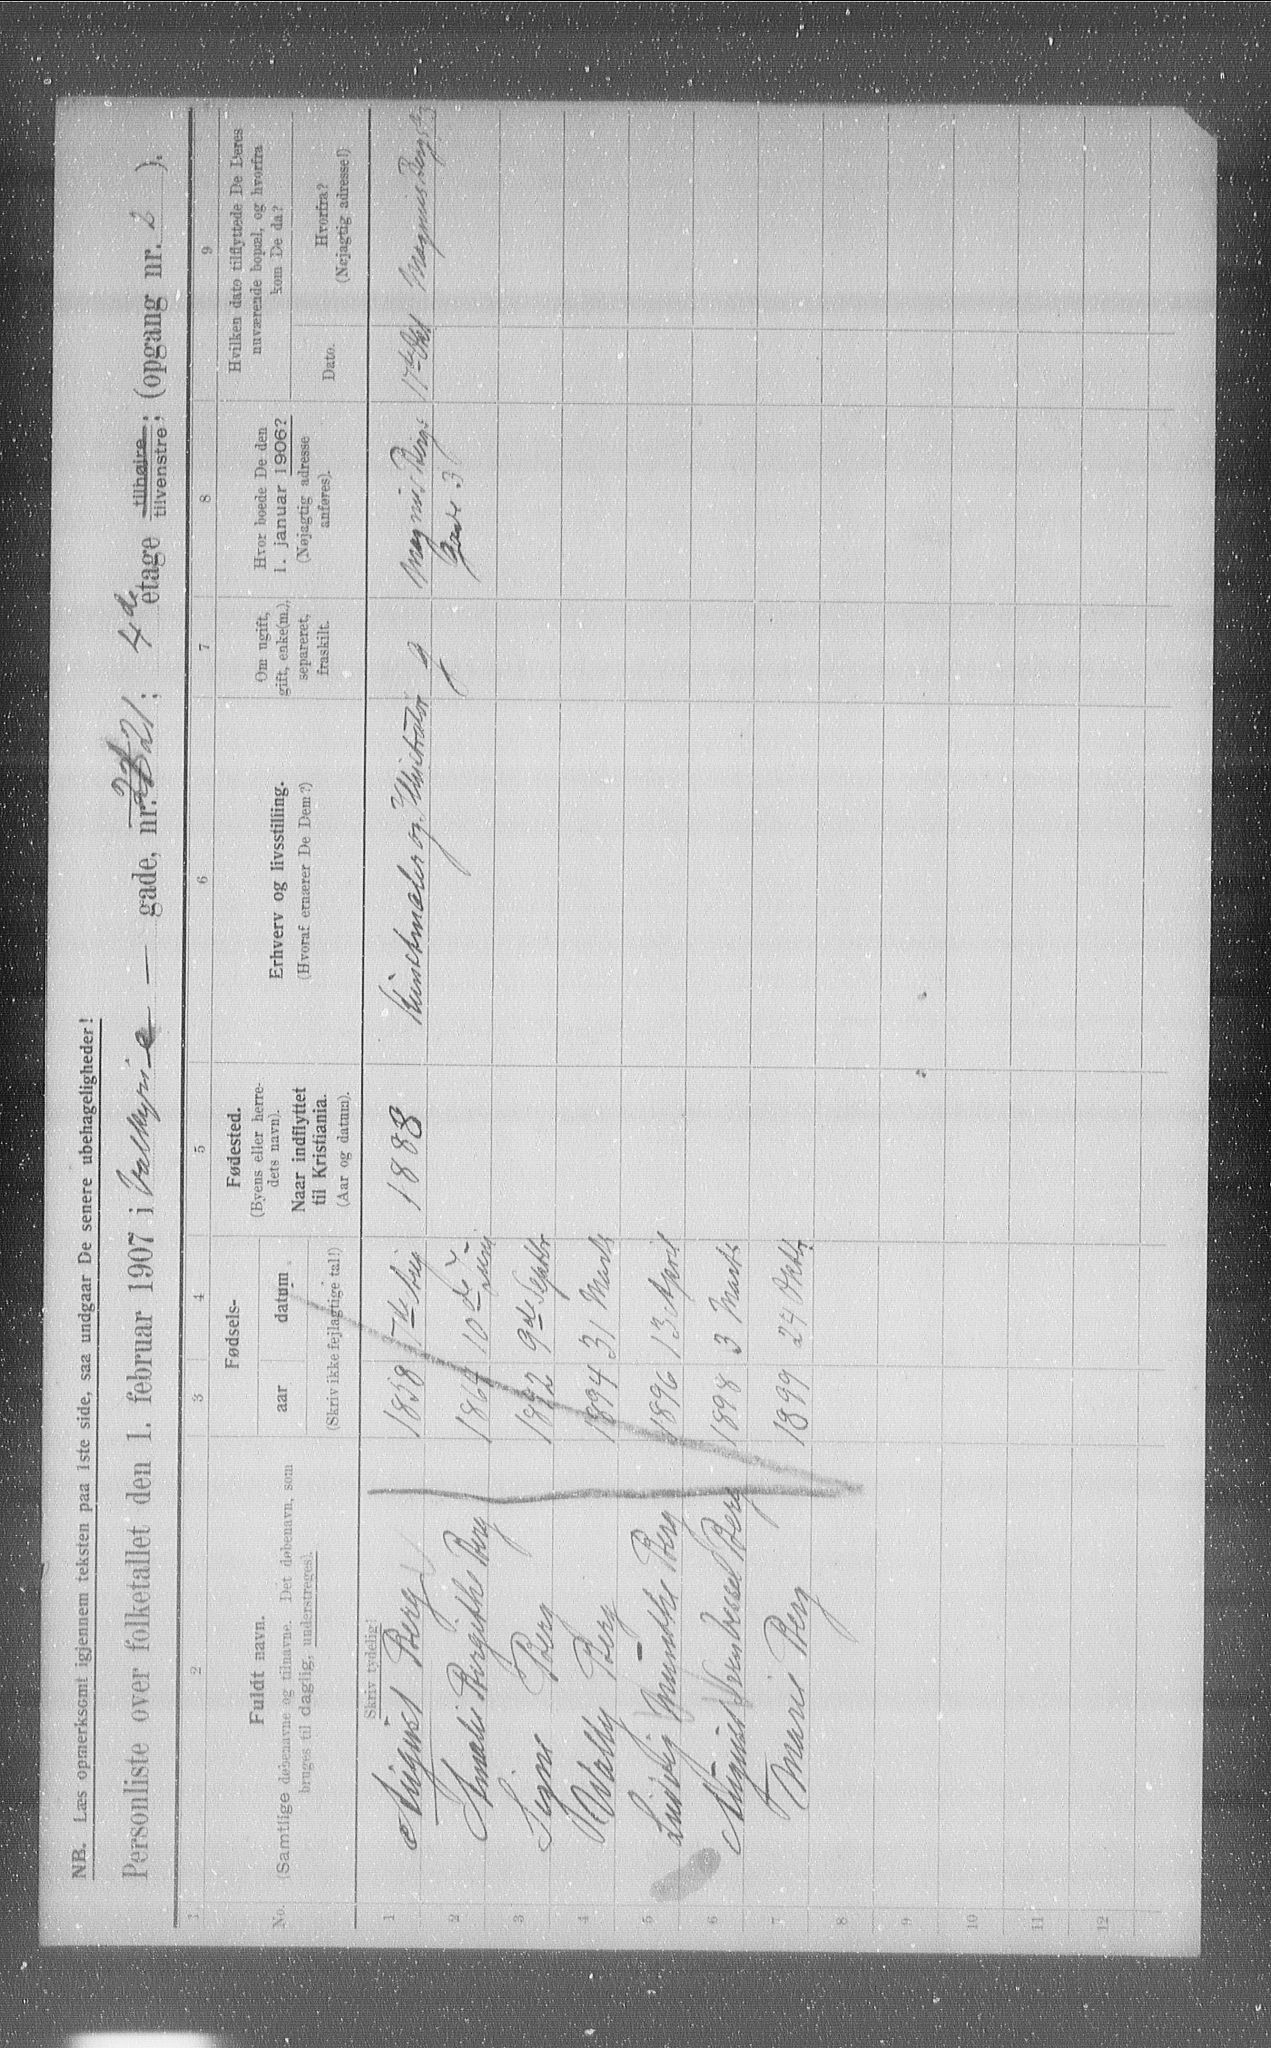 NB. Læs opmerksomt igjennem teksten paa 1ste side, saa undgaar De senere ubehageligheder!
Personliste over folketallet den 1. februar 1907 i Valkyrie — gade, nr. 21; 4de etage tilhøire; tilvenstre; (opgang nr. 2 ).
1 2 3 4 5 6 7 8 9
No.
Fuldt navn.
(Samtlige døbenavne og tilnavne. Det døbenavn, som
bruges til daglig, understreges).
Skriv tydelig!
Fødsels-
aar datum
(Skriv ikke fejlagtige tal!)
Fødested.
(Byens eller herre-
dets navn).
Naar indflyttet
til Kristiania.
(Aar og datum).
Erhverv og livsstilling.
(Hvoraf ernærer De Dem?)
Om ugift,
gift, enke(m.),
separeret,
fraskilt.
Hvor boede De den
1. januar 1906?
(Nøjagtig adresse
anføres).
Hvilken dato tilflyttede De Deres
nuværende bopæl, og hvorfra
kom De da?
Dato.
Hvorfra?
(Nøjagtig adresse!)
1 August Berg 1858 1888 Kunstmaler og Illustratør g Magnus Bergs 17de Okt Magnus Bergs
Gade 3
2 Amalie Birgithe Berg 1864 10de Juni
3 Signe Berg 1892 9de Septbr
4 Wally Berg 1894 31 Marts
5 Ludvig Munthe Berg 1896 13 April
6 August Berg 1898 3 Marts
7 Marie Berg 1899 24 Oktb.
8
9
10
11
12